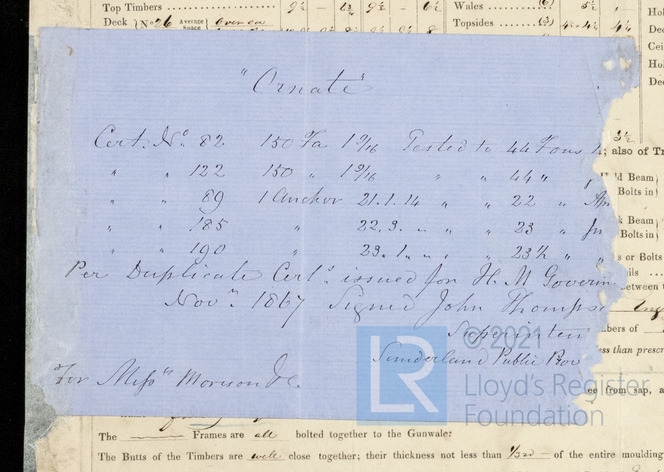 Top Timbers
Wales
Deck Nº 26 Average space over ea
Topsides
"Ornate"
Cert. Nº 82 150 Fa 1 9/16 Tested to 44 Tons
" " 122 150 " 1 9/16 " " 44 "
" " 89 1 Anchor 21.1.14 " " 22 "
" " 185 " 22.3. " " " 23 "
" " 190 " 23.1. " " " 23½ " "
Per Duplicate Certs. issued for H. M Governm
Novr. 1867 Signed John Thomps
Superinten
Sunderland Public Prov
For Messrs Morison &c.
; also of Tr
ld Beam
Bolts in
k Beam
Bolts in
s or Bolts
less than prescr
ee from sap, a
© 2021
LR
Lloyd's Register
Foundation
The Frames are all bolted together to the Gunwale:
The Butts of the Timbers are well close together; their thickness not less than 1/3rd of the entire moulding